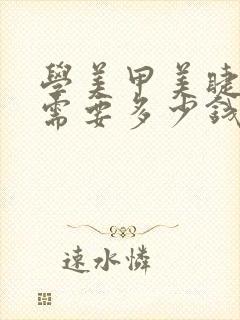 學美甲美睫
需要多少錢
遠水憐